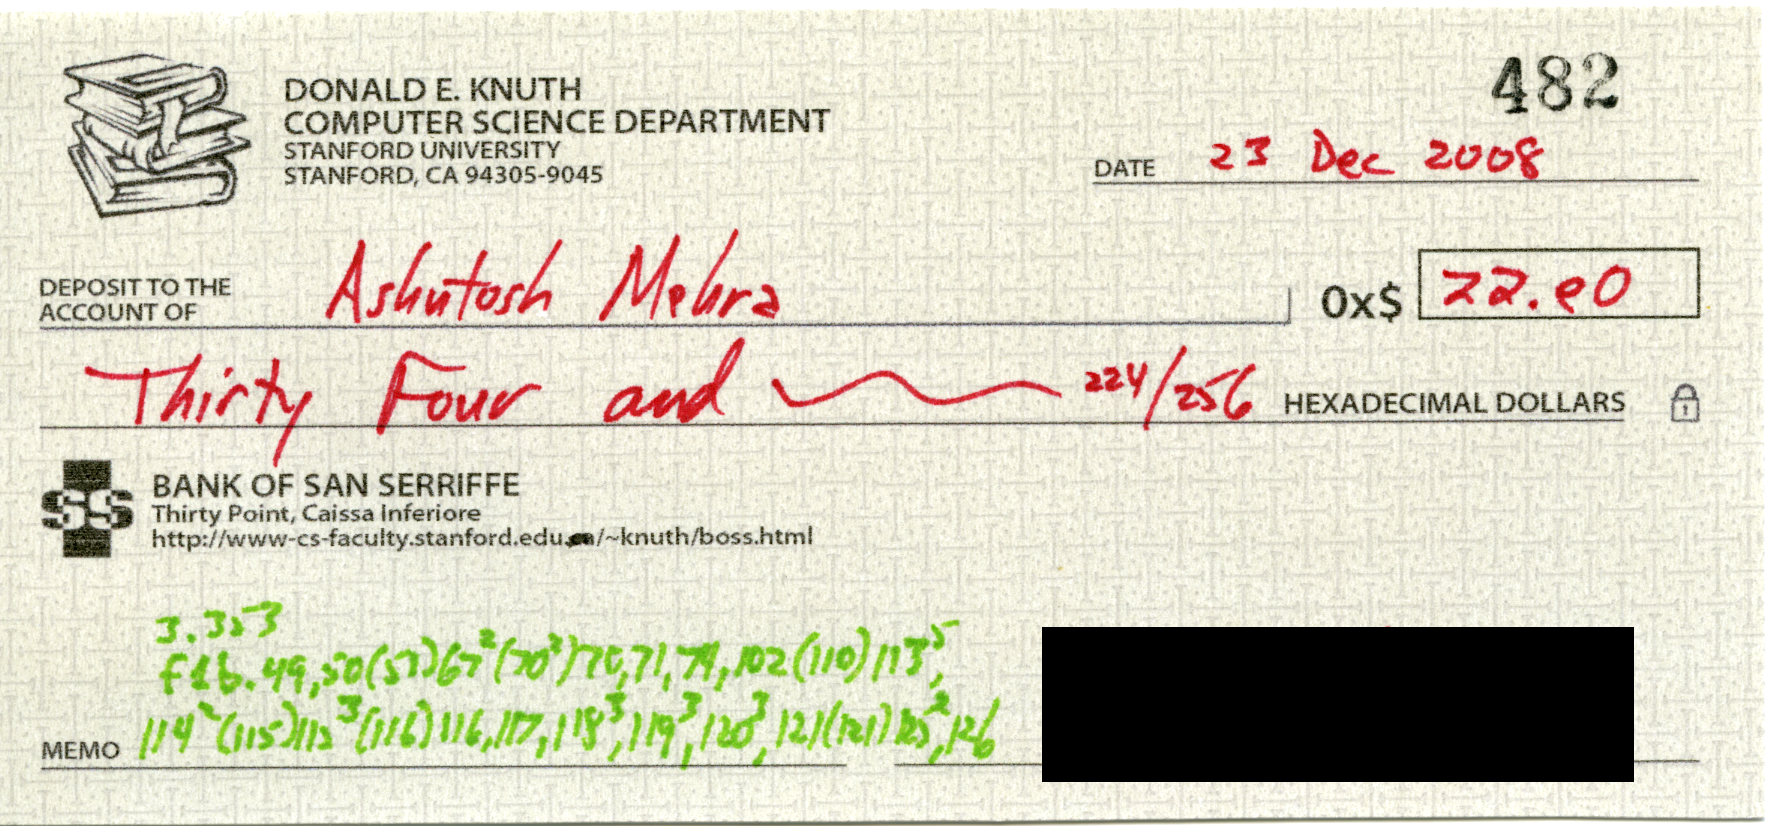 482
DONALD E. KNUTH
COMPUTER SCIENCE DEPARTMENT
STANFORD UNIVERSITY
STANFORD, CA 94305-9045
DATE 23 Dec 2008
DEPOSIT TO THE
ACCOUNT OF Ashutosh Mehra 0x$ 22.e0
Thirty Four and 224/256 HEXADECIMAL DOLLARS
SS
BANK OF SAN SERRIFFE
Thirty Point, Caissa Inferiore
http://www-cs-faculty.stanford.edu/~knuth/boss.html
3.353
f1b.49,50(57)67²(70²)70,71,79,102(110)113⁵,
MEMO 114²(115)115³(116)116,117,118³,119³,120³,121(121)125²,126